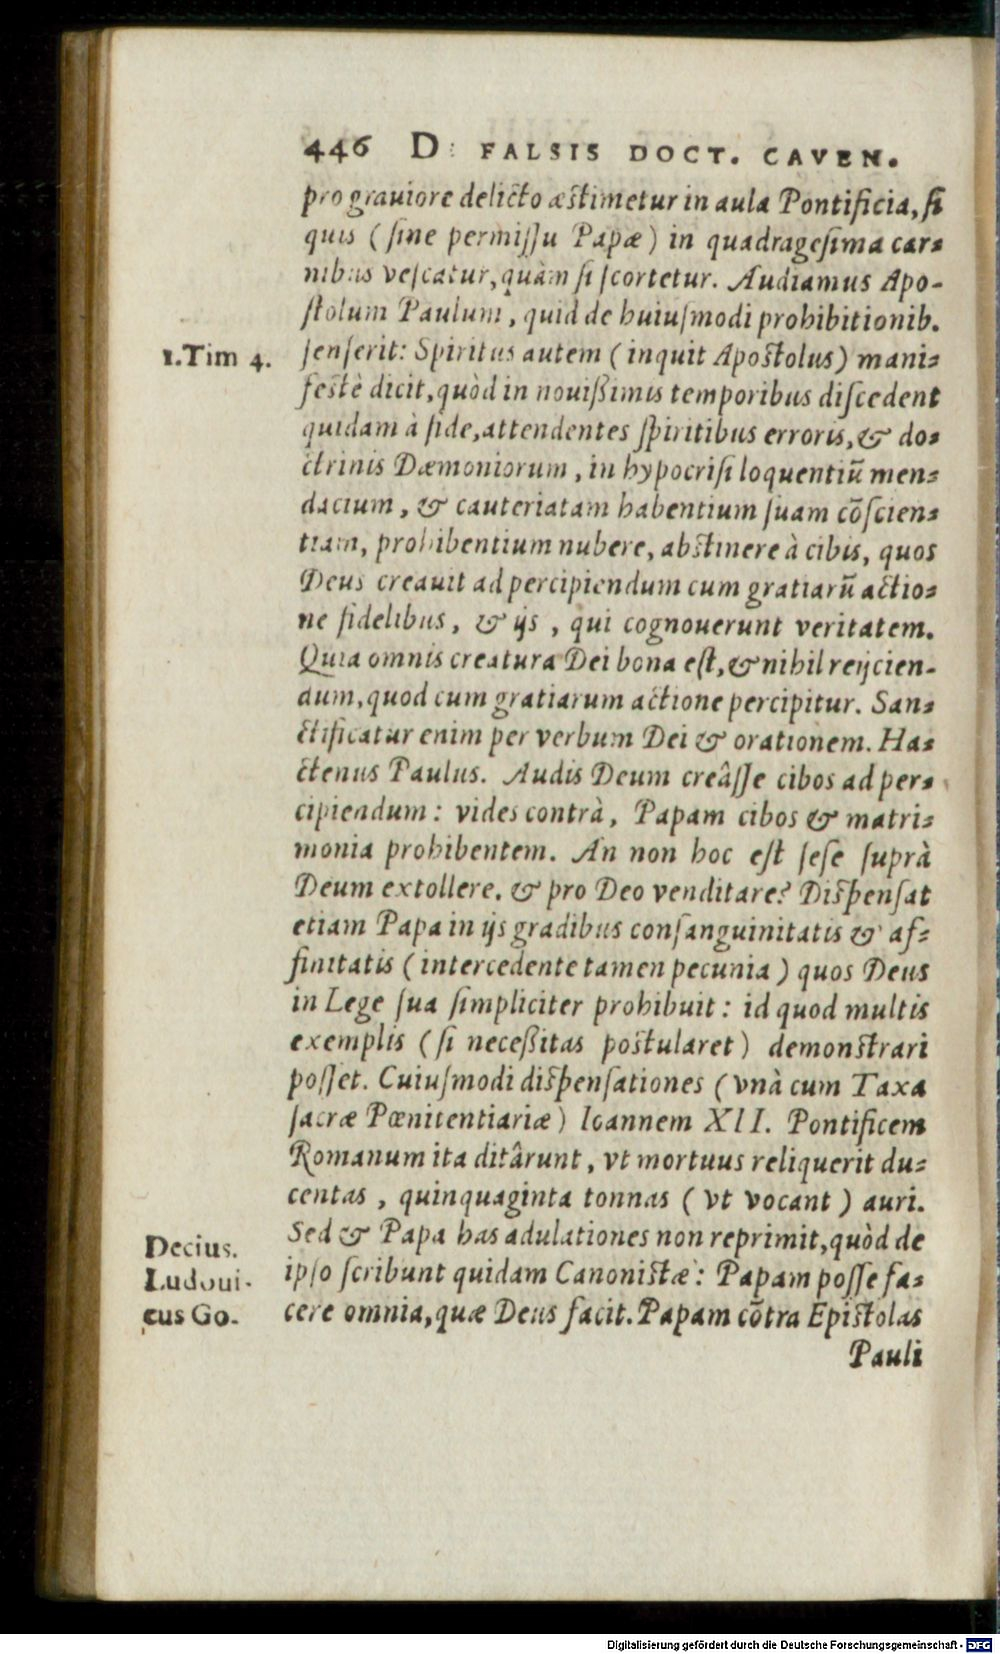 446 D: FALSIS DOCT. CAVEN.
pro grauiore delicto æstimetur in aula Pontificia, si
quis (sine permissu Papæ) in quadragesima car-
nibus vescatur, quàm si scortetur. Audiamus Apo-
stolum Paulum, quid de huiusmodi prohibitionib.
1.Tim 4.
senserit: Spiritus autem (inquit Apostolus) mani-
festè dicit, quòd in nouißimis temporibus discedent
quidam à fide, attendentes spiritibus erroris, & do-
ctrinis Dæmoniorum, in hypocrisi loquentiū men-
dacium, & cauteriatam habentium suam cōscien-
tiam, prohibentium nubere, abstinere à cibis, quos
Deus creauit ad percipiendum cum gratiarū actio-
ne fidelibus, & ijs, qui cognouerunt veritatem.
Quia omnis creatura Dei bona est, & nihil reijcien-
dum, quod cum gratiarum actione percipitur. San-
ctificatur enim per verbum Dei & orationem. Ha-
ctenus Paulus. Audis Deum creâsse cibos ad per-
cipiendum: vides contrà, Papam cibos & matri-
monia prohibentem. An non hoc est sese suprà
Deum extollere, & pro Deo venditare? Dispensat
etiam Papa in ijs gradibus consanguinitatis & af-
finitatis (intercedente tamen pecunia) quos Deus
in Lege sua simpliciter prohibuit: id quod multis
exemplis (si neceßitas postularet) demonstrari
posset. Cuiusmodi dispensationes (vnà cum Taxa
sacræ Pœnitentiariæ) Ioannem XII. Pontificem
Romanum ita ditârunt, vt mortuus reliquerit du-
centas, quinquaginta tonnas (vt vocant) auri.
Sed & Papa has adulationes non reprimit, quòd de
Decius.
Ludoui-
cus Go.
ipso scribunt quidam Canonistæ: Papam posse fa-
cere omnia, quæ Deus facit. Papam cōtra Epistolas
Pauli
Digitalisierung gefördert durch die Deutsche Forschungsgemeinschaft - DFG